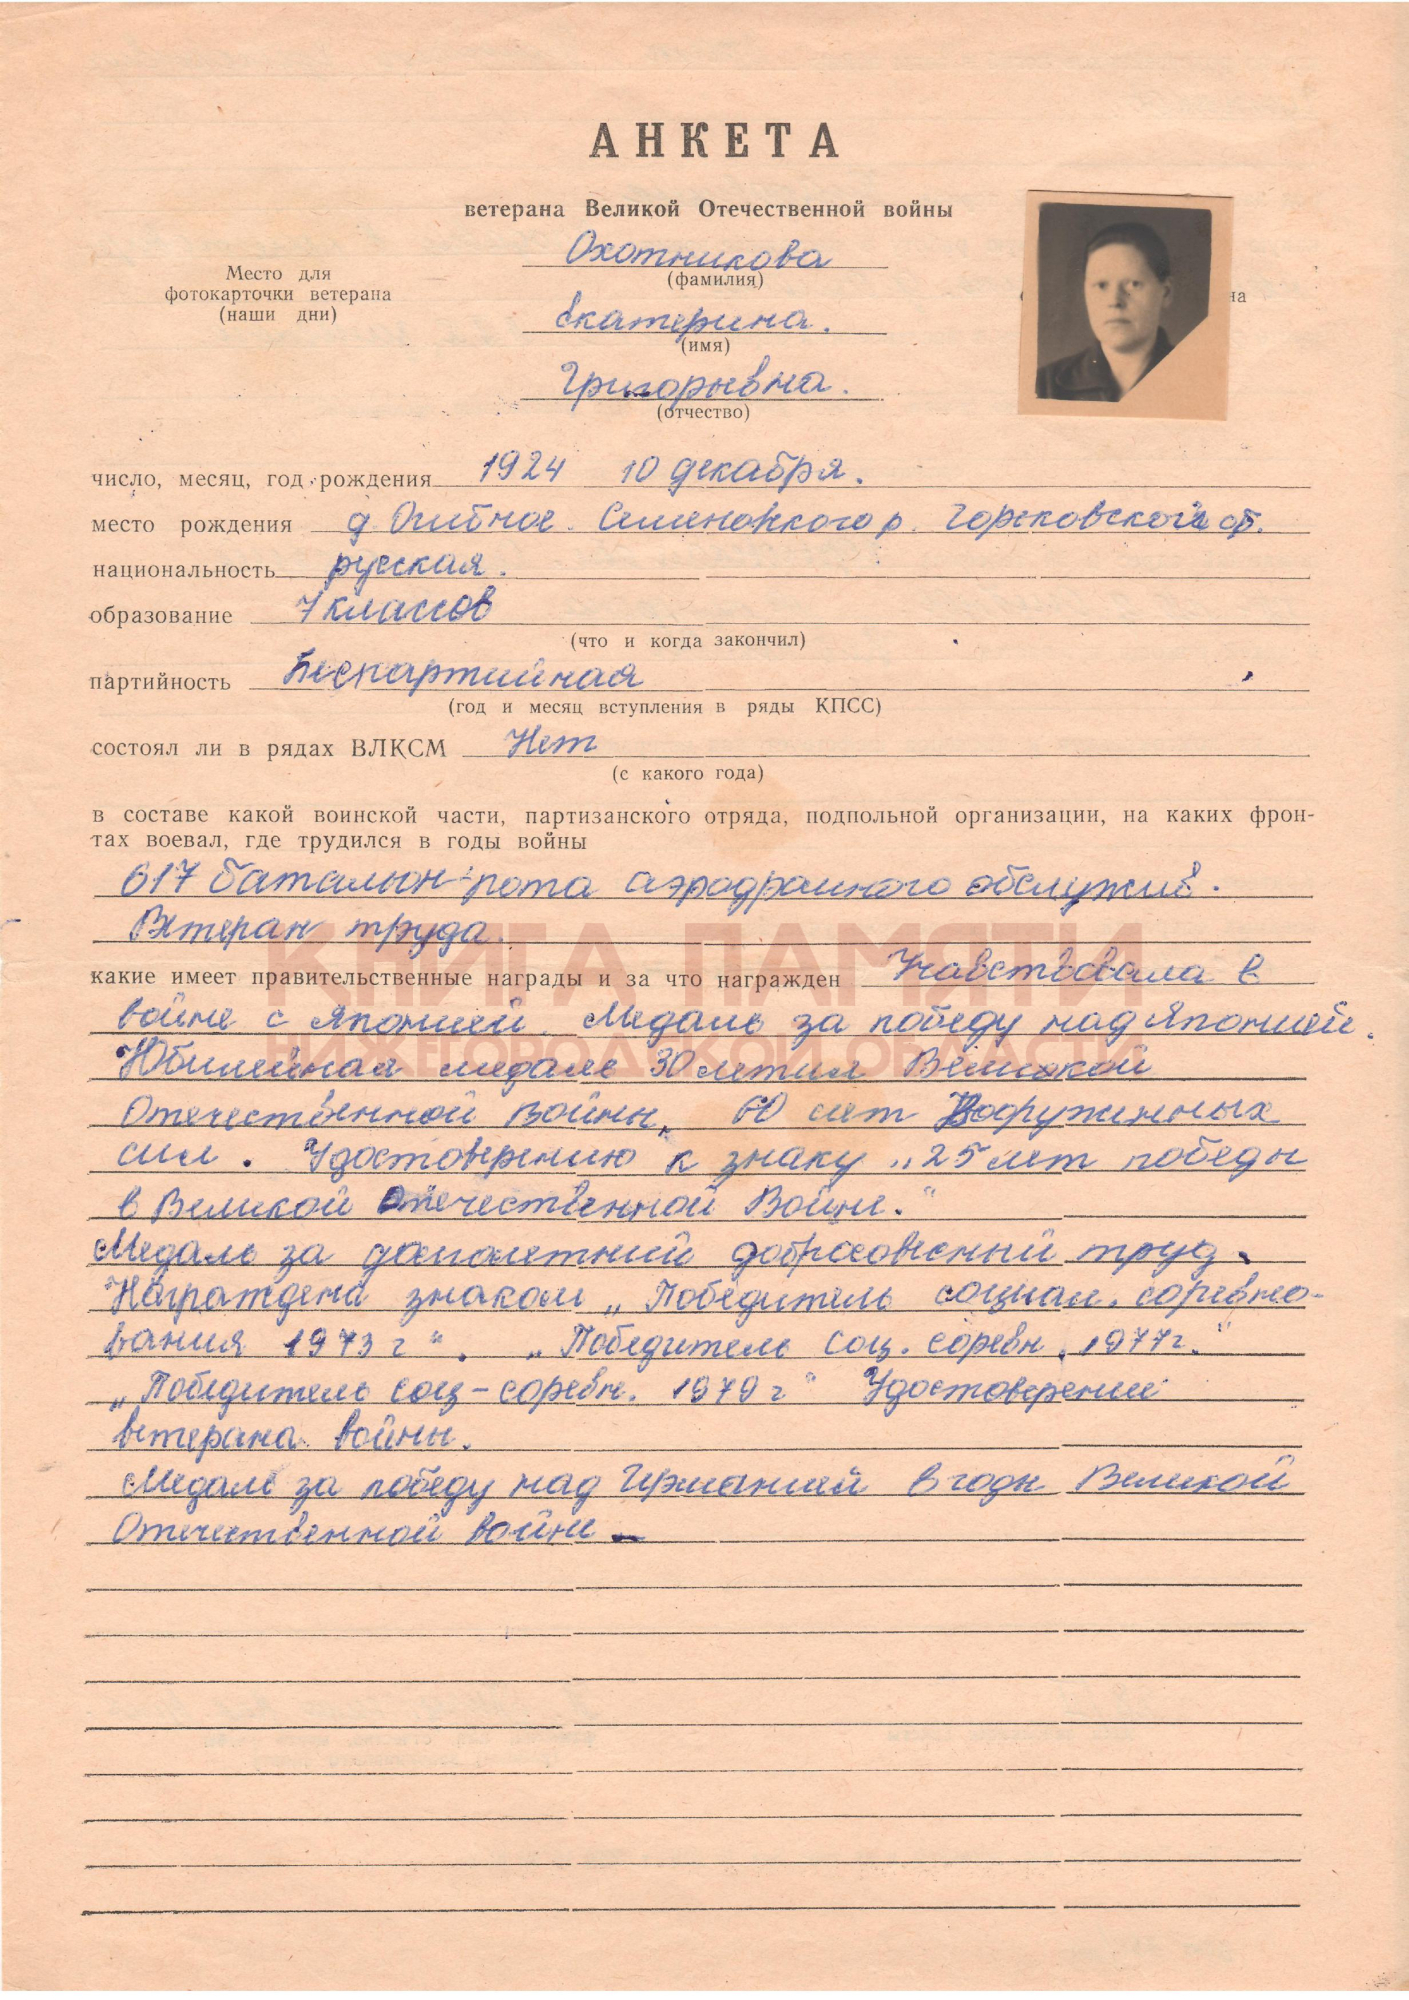 АНКЕТА
ветерана Великой Отечественной войны
Охотникова
(фамилия)
Место для
фотокарточки ветерана
(наши дни)
на
Екатерина.
(имя)
Григорьевна.
(отчество)
число, месяц, год рождения 1924 10 декабря.
место рождения д Озибное. Семеновского р. Горьковской об.
национальность русская.
образование 7 классов
(что и когда закончил)
партийность Беспартийная
(год и месяц вступления в ряды КПСС)
состоял ли в рядах ВЛКСМ Нет
(с какого года)
в составе какой воинской части, партизанского отряда, подпольной организации, на каких фрон-
тах воевал, где трудился в годы войны
617 батальон-рота аэродромного обслужив.
Ветеран труда.
КНИГА ПАМЯТИ
какие имеет правительственные награды и за что награжден Учавствовала в
войне с Японией. Медаль за победу над Японией.
НИЖЕГОРОДСКОЙ ОБЛАСТИ
Юбилейная медаль 30 летия Великой
Отечественной войны, 60 лет Вооруженных
сил. Удостоверению к знаку „25 лет победы
в Великой Отечественной Войне."
Медаль за долголетний добросовесный труд.
Награждена знаком „Победитель социал. соревно-
вания 1973 г". „Победитель Соц. соревн. 1977г."
„Победитель соц-соревн. 1979 г" Удостоверение
ветерана войны.
Медаль за победу над Германией в годы Великой
Отечественной войне